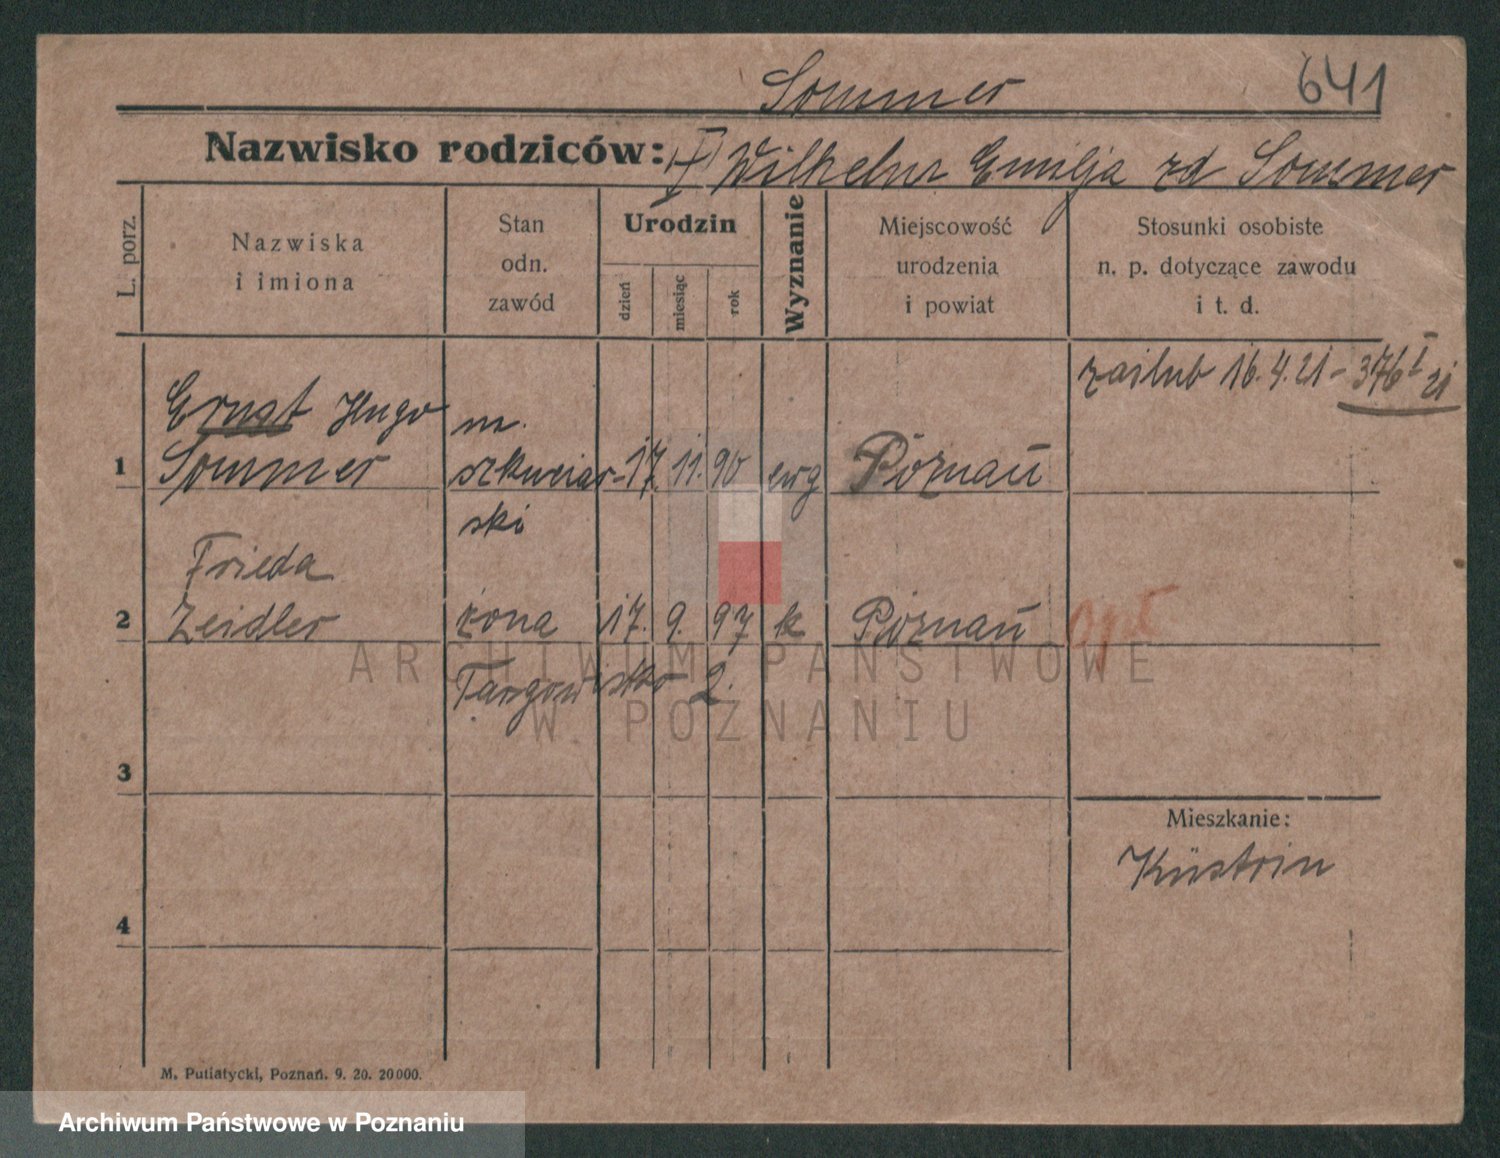 Sommer 641
Nazwisko rodziców: I Wilhelm Emilja zd Sommer
L. porz.
Nazwiska
i imiona
Stan
odn.
zawód
Urodzin
dzień
miesiąc
rok
Wyznanie
Miejscowość
urodzenia
i powiat
Stosunki osobiste
n. p. dotyczące zawodu
i t. d.
zaślub 16.4.21 - 376 I 21
Ernst Hugo m.
1 Sommer 17. 11. 90 ewg Poznań
ski
Frieda
2 Zeidler żona 17. 9. 97 k Poznań opt
Targowisko 2.
ARCHIWUM PAŃSTWOWE
W POZNANIU
3
Mieszkanie:
Küstrin
4
M. Putiatycki, Poznań. 9. 20. 20000.
Archiwum Państwowe w Poznaniu